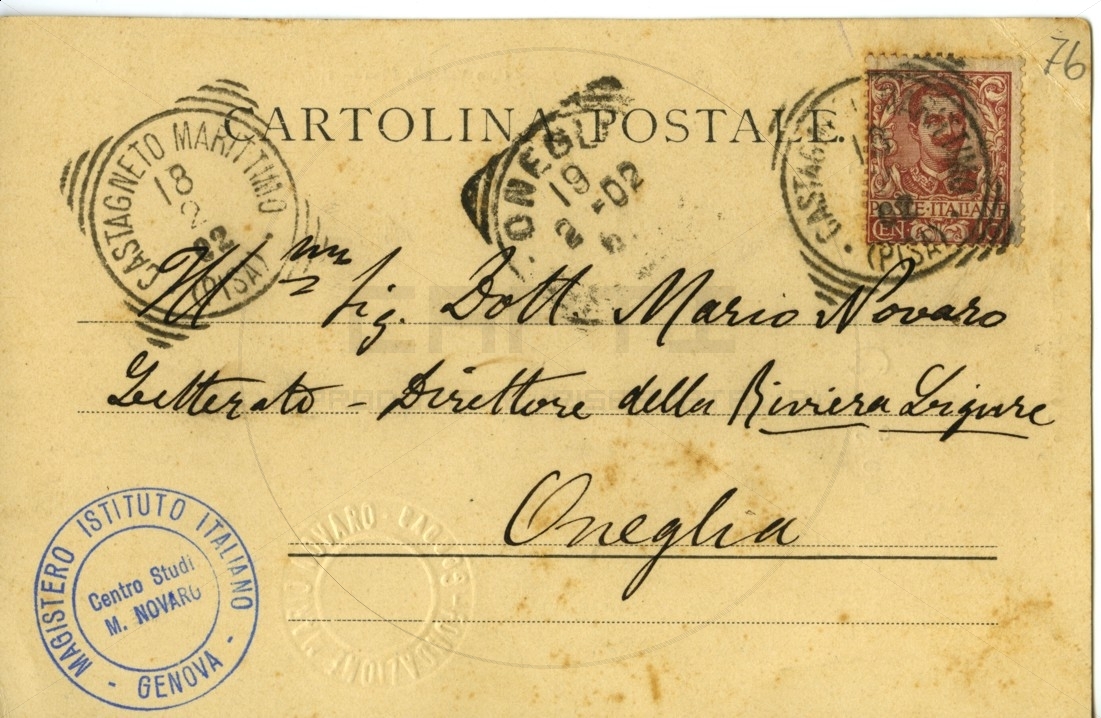 76
CARTOLINA POSTALE.
CASTAGNETO MARITTIMO
18
2
02
(PISA)
ONEGLIA
19
2-02
CASTAGNETO MARITTIMO
18
(PISA)
POSTE·ITALIANE
CENT
Ill mo Sig. Dott Mario Novaro
Letterato - Direttore della Riviera Ligure
Oneglia
MAGISTERO ISTITUTO ITALIANO
Centro Studi
M. NOVARO
- GENOVA -
FONDAZIONE "MARIO NOVARO